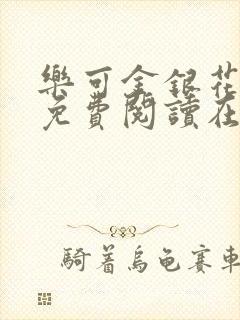 樂可金銀花
免費閱讀在
騎著烏龜賽車